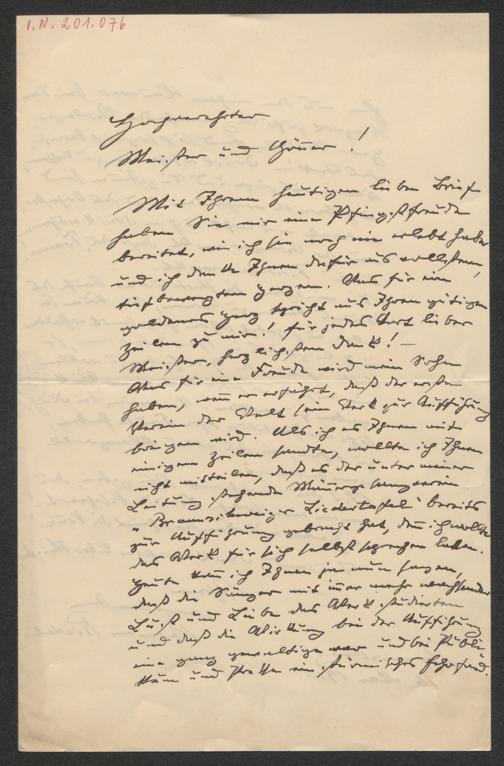 I.N. 201.076
Hochverehrter
Meister und Gönner!
Mit Ihrem heutigen lieben Brief
haben Sie mir eine Pfingstfreude
bereitet, wie ich sie noch nie erlebt habe
und ich danke Ihnen dafür aus vollstem,
tiefbewegten Herzen. Was für ein
goldenes Herz spricht aus Ihren gütigen
Zeilen zu mir! Für jedes Wort lieber
Meister, herzlichsten Dank! —
Was für eine Freude wird mein Sohn
haben, wenn er erfährt, daß der erste
Verein der Welt sein Werk zur Aufführung
bringen wird. Als ich es Ihnen mit
einigen Zeilen sandte, wollte ich Ihnen
nicht mitteilen, daß es der unter meiner
Leitung stehende Männergesangverein
„Braunschweiger Liedertafel" bereits
zur Aufführung gebracht hat, denn ich wollte
das Werk für sich selbst sprechen lassen.
Heute kann ich Ihnen ja nun sagen,
daß die Sänger mit immer mehr wachsender
Lust und Liebe das Werk studierten
und daß die Wirkung bei der Aufführung
eine ganz gewaltige war und bei Publi-
kum und Presse ein stürmisches Echo fand.